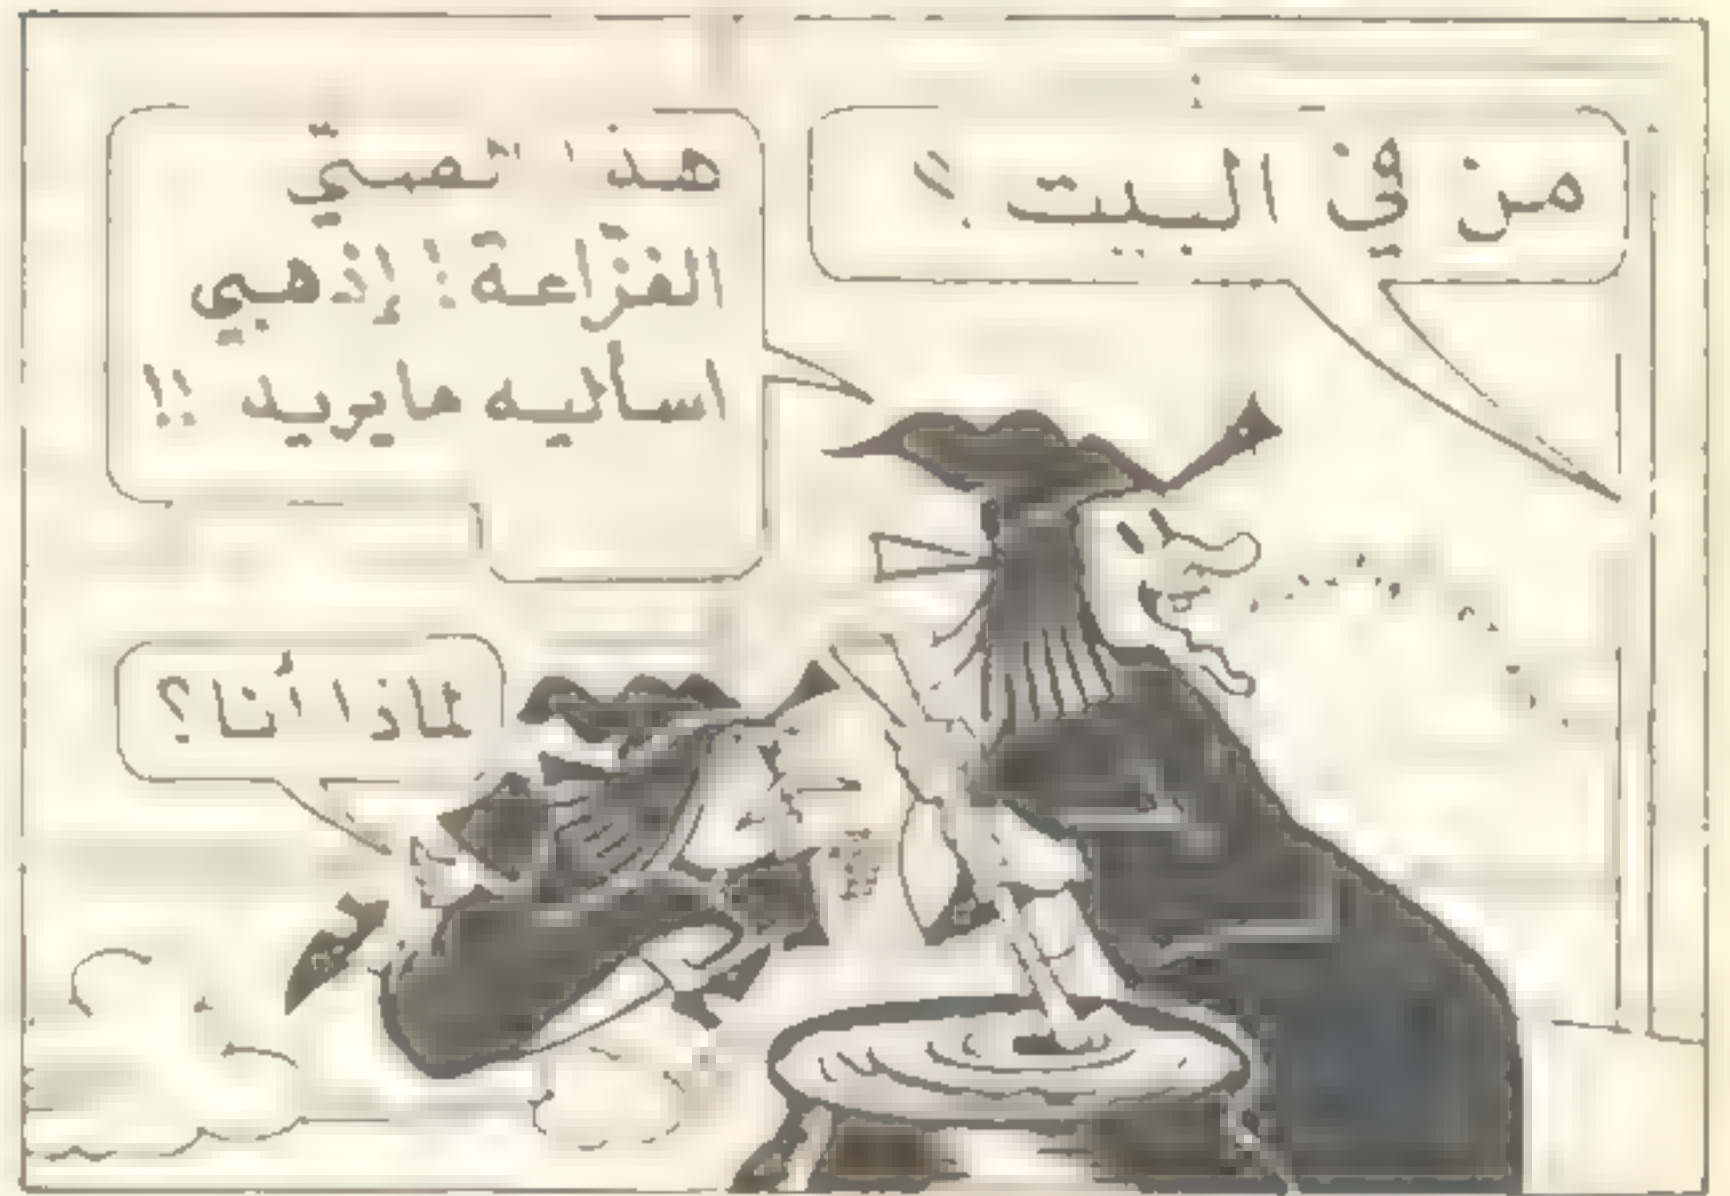 من في البيت ؟
هذا
الفزّاعة ! إذهبي
اسأليه ما يريد !!
لماذا أنا ؟